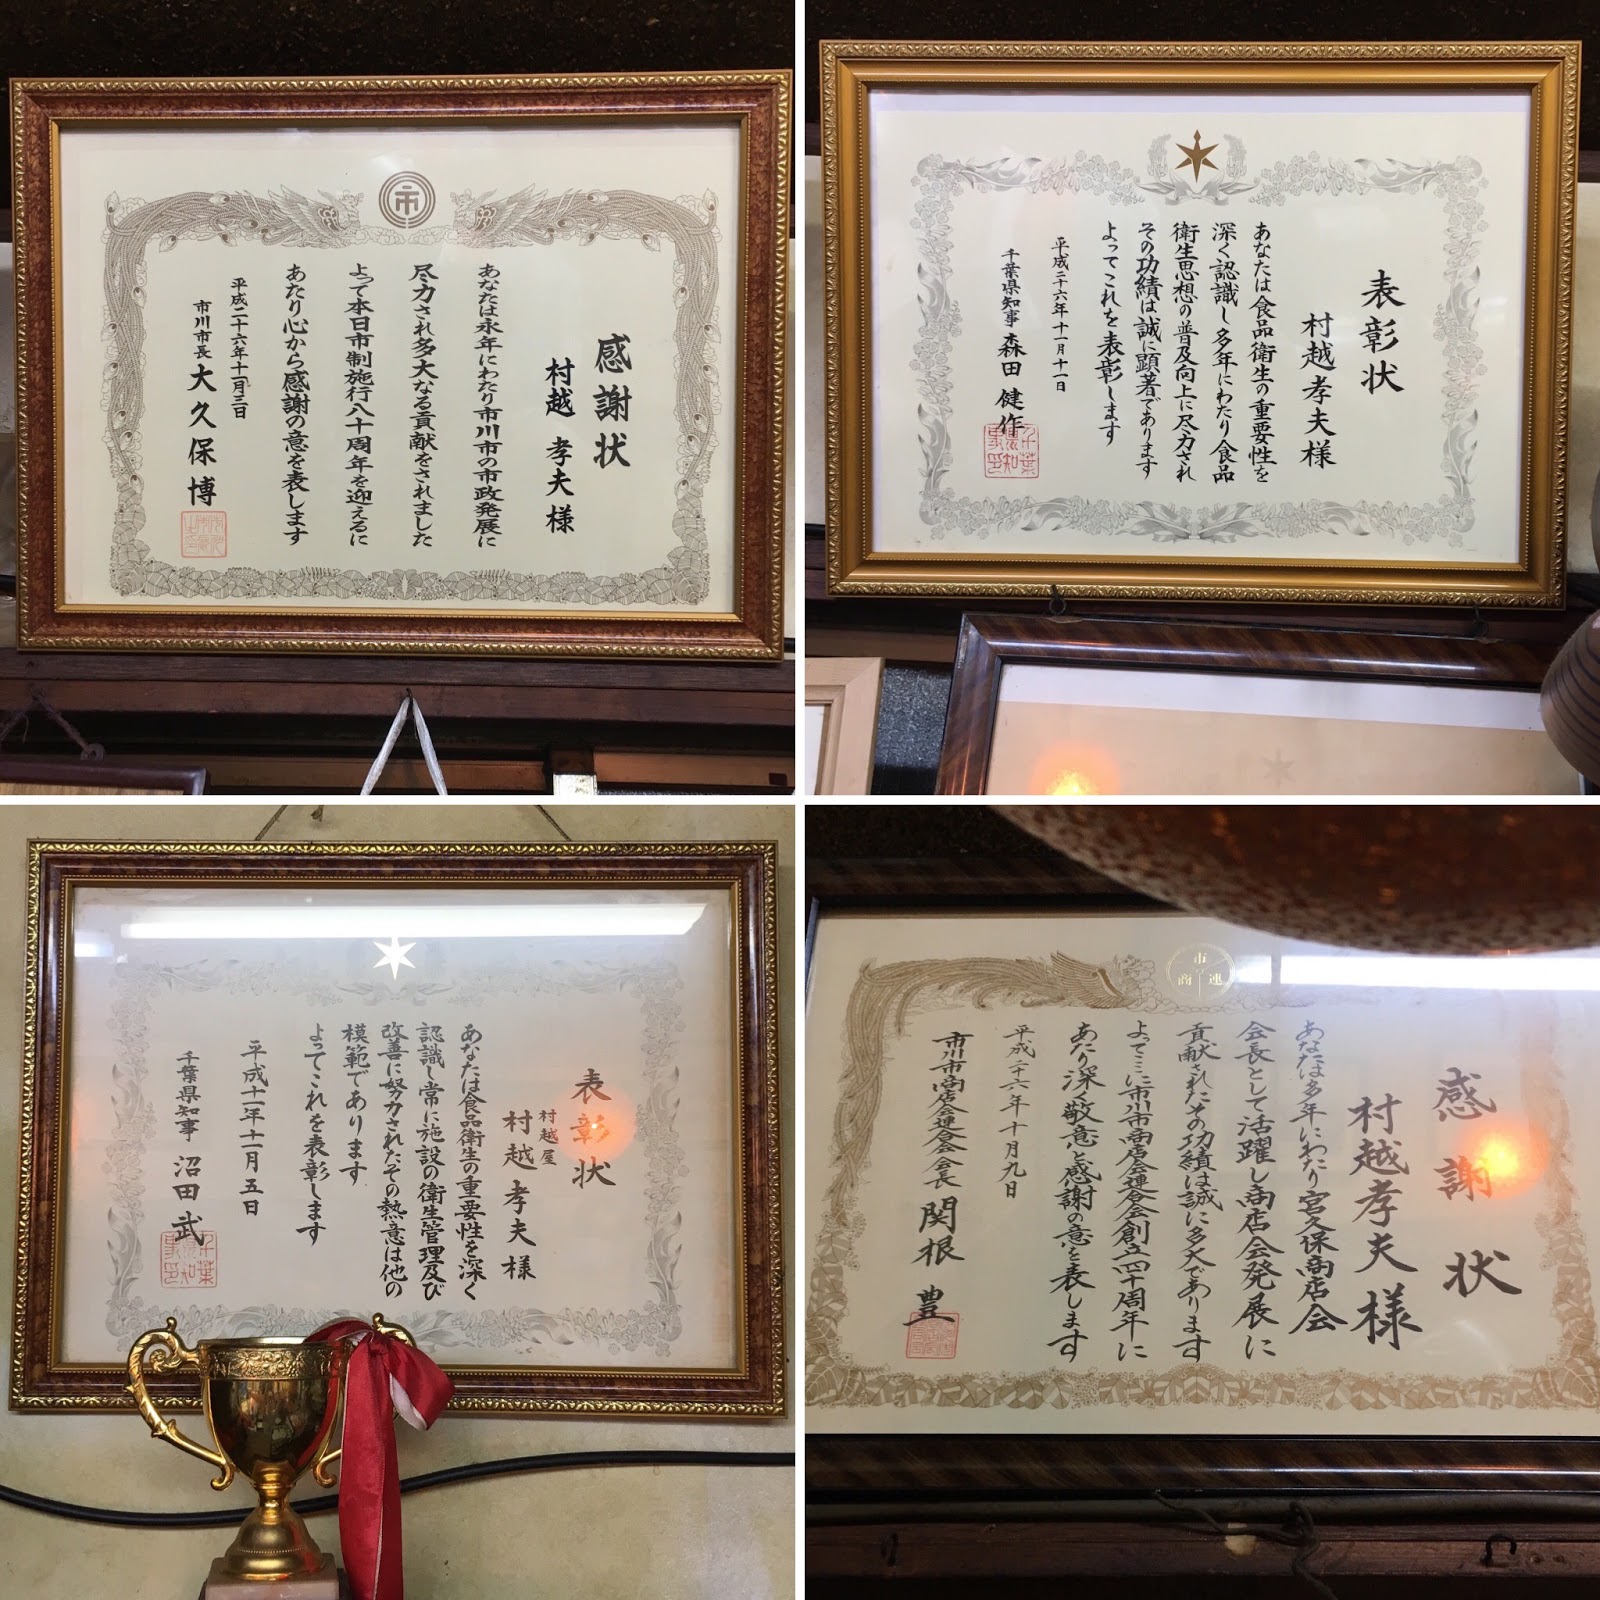 市
感謝状
村越 孝夫様
あなたは永年にわたり市川市の市政発展に
尽力され多大なる貢献をされました
よって本日市制施行八十周年を迎えるに
あたり心から感謝の意を表します
平成二十六年十一月三日
市川市長 大久保博
表彰状
村越孝夫様
あなたは食品衛生の重要性を
深く認識し多年にわたり食品
衛生思想の普及向上に尽力され
その功績は誠に顕著であります
よってこれを表彰します
平成二十六年十一月十一日
千葉県知事 森田健作
千葉県知事
表彰状
村越屋
村越孝夫様
あなたは食品衛生の重要性を深く
認識し常に施設の衛生管理及び
改善に努力されたその熱意は他の
模範であります
よってこれを表彰します
平成十一年十一月五日
千葉県知事 沼田武
千葉県知事
市商連
感謝状
村越孝夫様
あなたは多年にわたり宮久保商店会
会長として活躍し商店会発展に
貢献されたその功績は誠に多大であります
よってここに市川市商店会連合会創立四十周年に
あたり深く敬意と感謝の意を表します
平成二十六年十月九日
市川市商店会連合会会長 関根 豊